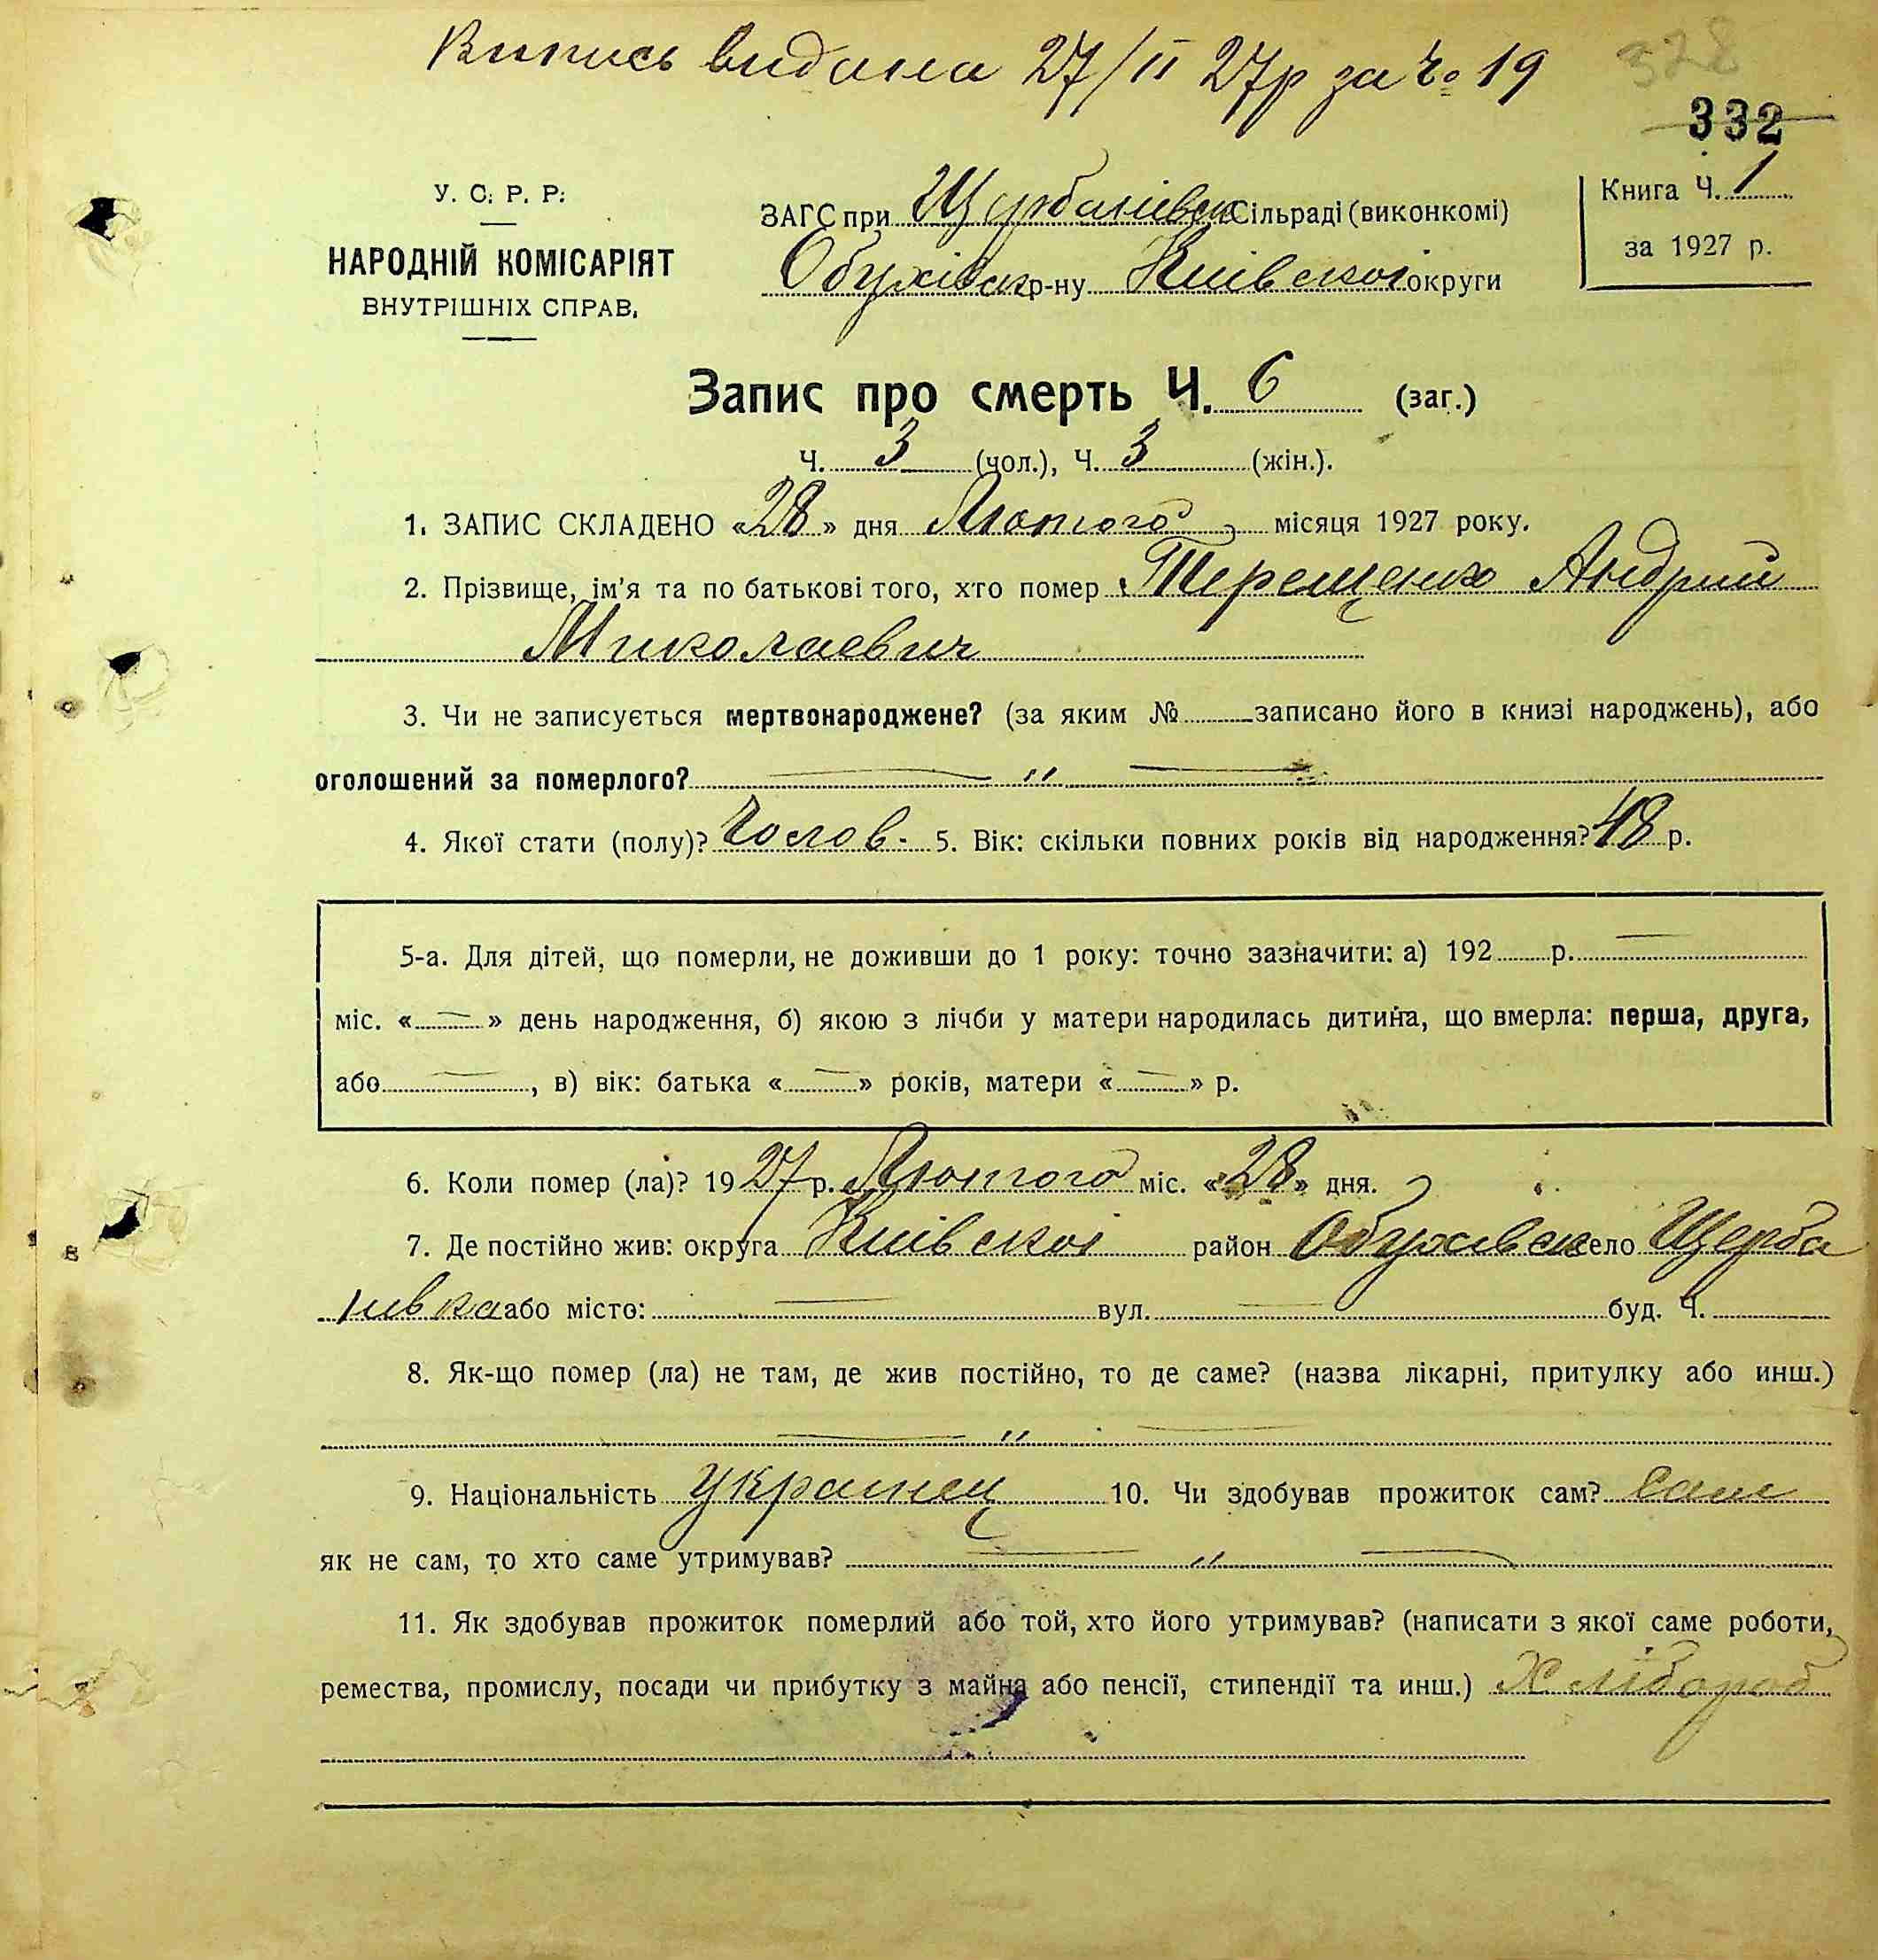 Випись видана 27/II 27р за ч. 19
328
332
У. С. Р. Р.
НАРОДНІЙ КОМІСАРІЯТ
ВНУТРІШНІХ СПРАВ.
ЗАГС при Щербанівськ Сільраді (виконкомі)
Обухівськ р-ну Київської округи
Книга Ч. 1
за 1927 р.
Запис про смерть Ч. 6 (заг.)
Ч. 3 (чол.), Ч. 3 (жін.).
1. ЗАПИС СКЛАДЕНО «28» дня Лютого місяця 1927 року.
2. Прізвище, ім'я та по батькові того, хто помер Терещенко Андрий
Миколаевич
3. Чи не записується мертвонароджене? (за яким № записано його в книзі народжень), або
оголошений за померлого? — " —
4. Якої стати (полу)? Голов. 5. Вік: скільки повних років від народження? 48 р.
5-а. Для дітей, що померли, не доживши до 1 року: точно зазначити: а) 192 р. —
міс. « — » день народження, б) якою з лічби у матери народилась дитина, що вмерла: перша, друга,
або — , в) вік: батька « — » років, матери « — » р.
6. Коли помер (ла)? 1927 р. Лютого міс. «28» дня.
7. Де постійно жив: округа Київскоі район Обухівськ село Щерба
нівка або місто: — вул. — буд. Ч.
8. Як-що помер (ла) не там, де жив постійно, то де саме? (назва лікарні, притулку або инш.)
— " —
9. Національність Украинец 10. Чи здобував прожиток сам? Сам
як не сам, то хто саме утримував? — " —
11. Як здобував прожиток померлий або той, хто його утримував? (написати з якої саме роботи,
ремества, промислу, посади чи прибутку з майна або пенсії, стипендії та инш.) Хлібороб